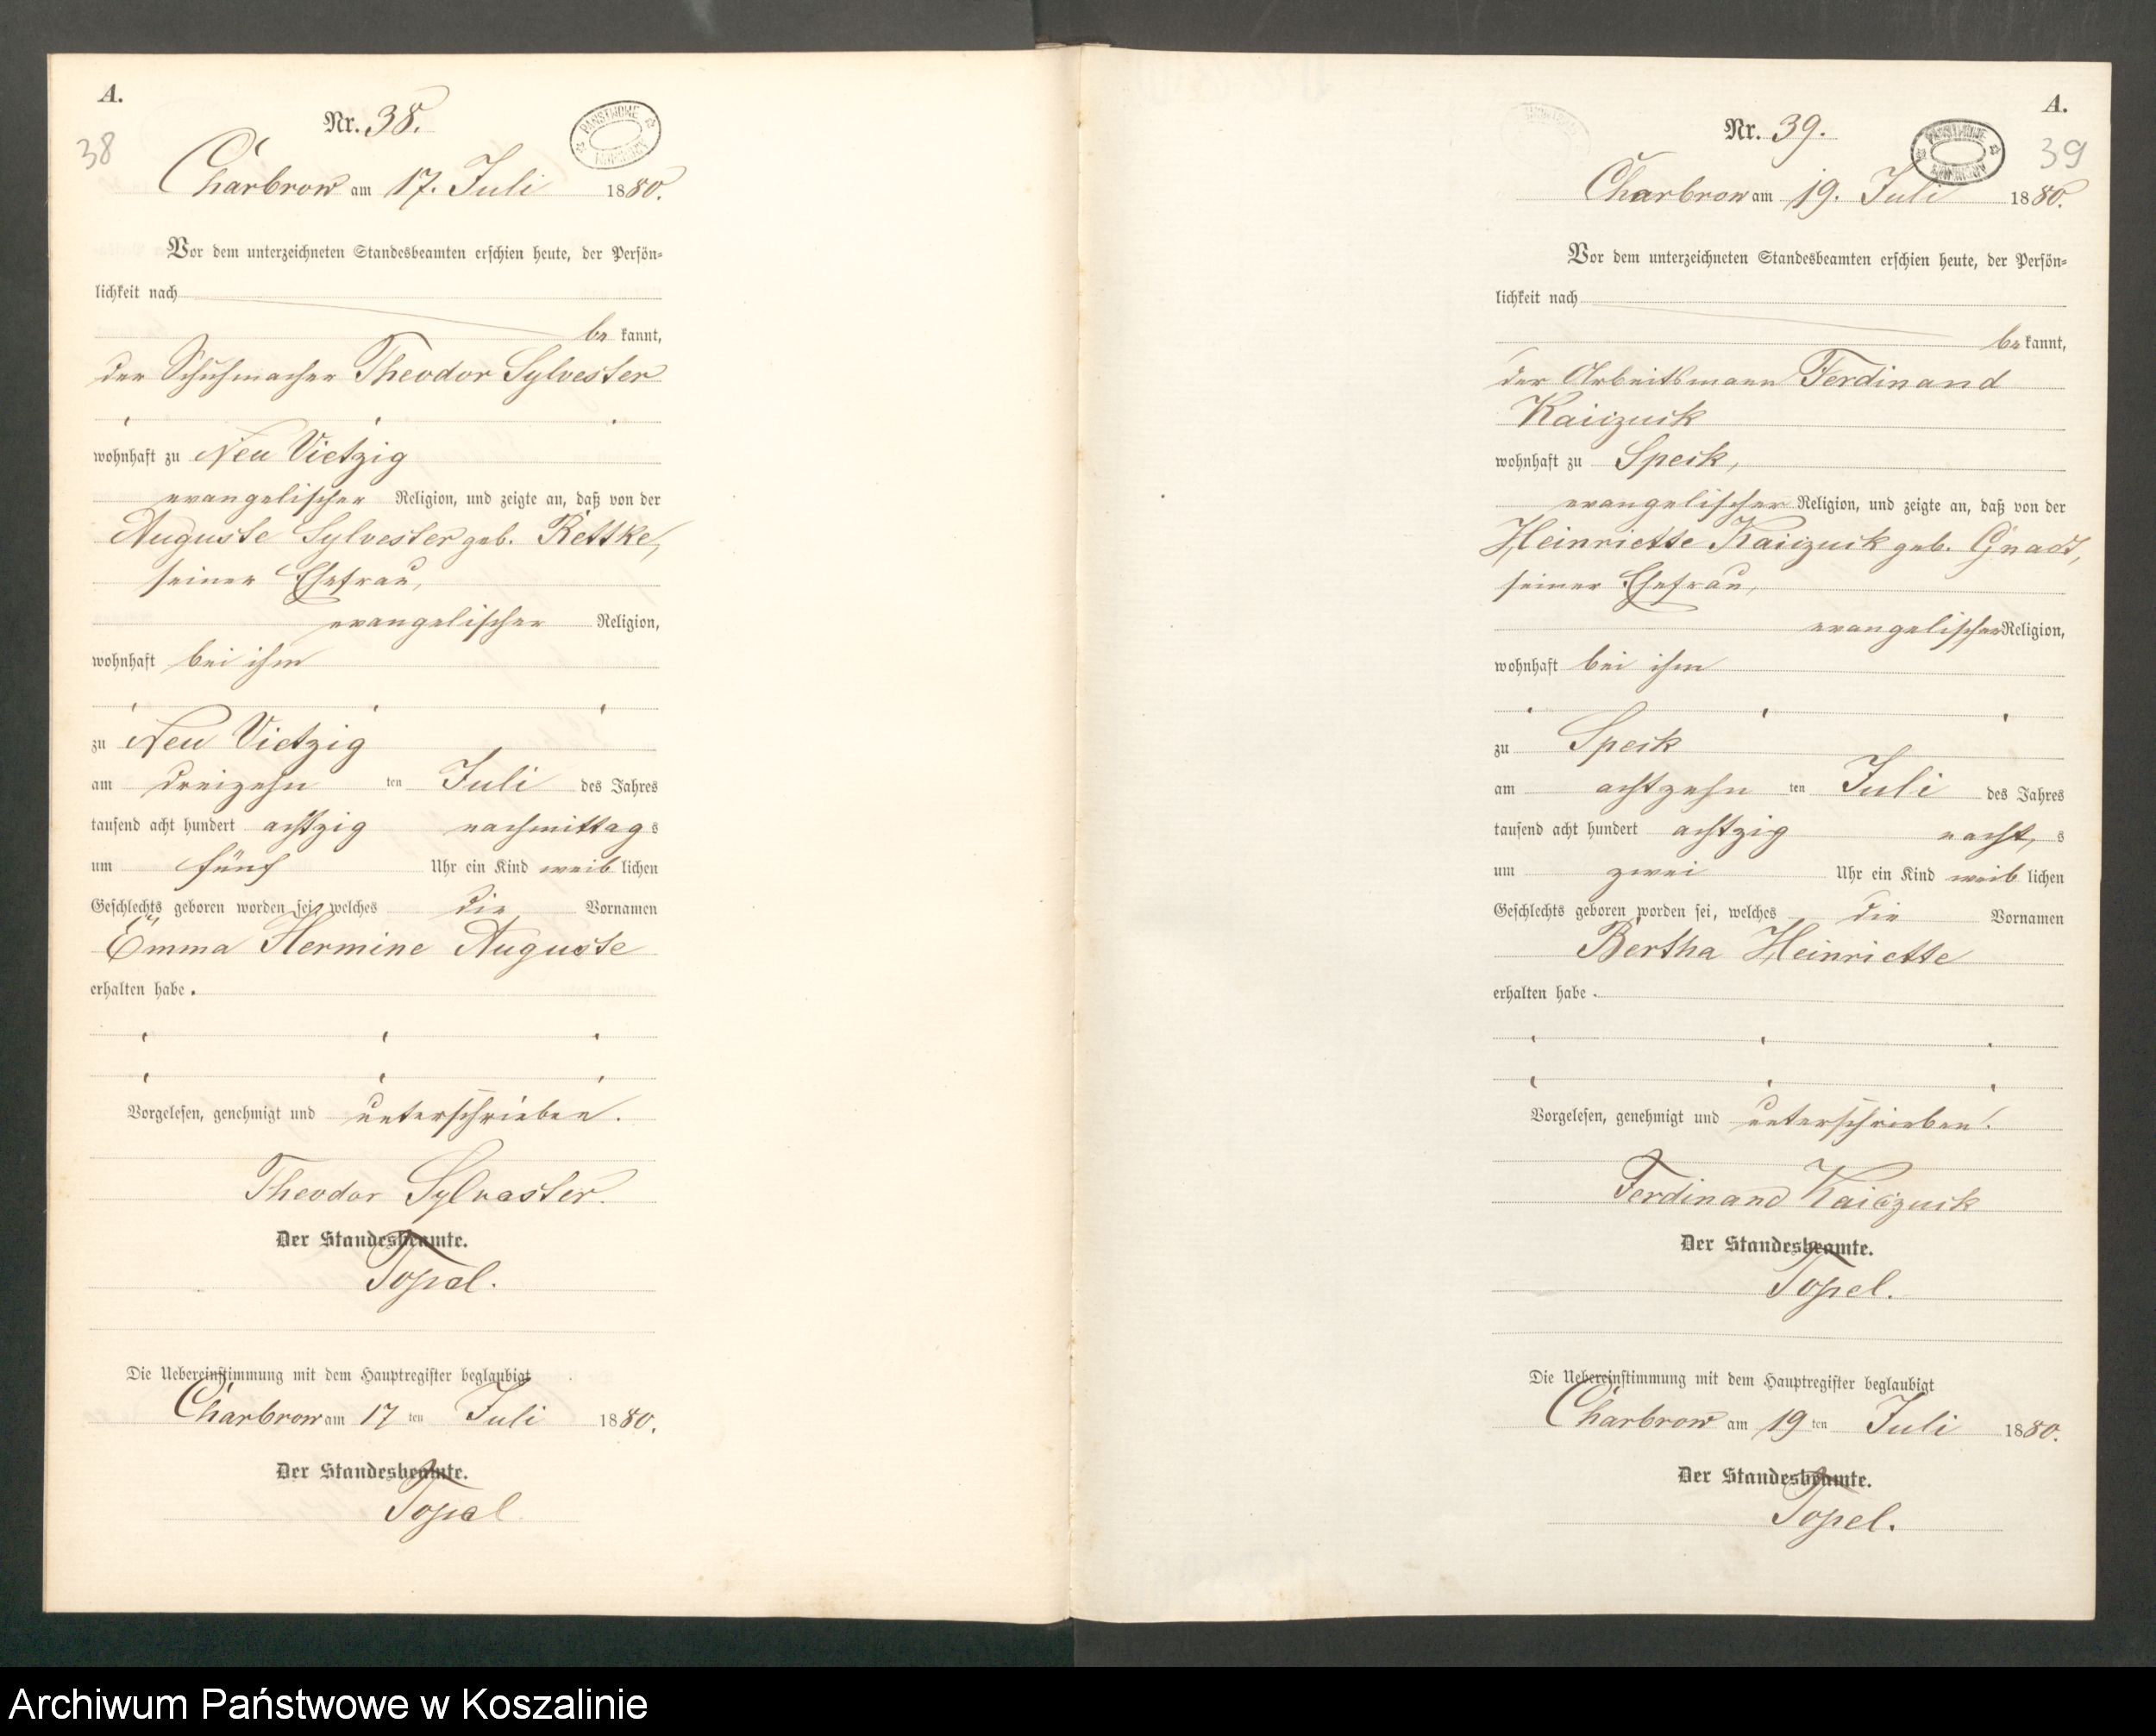 A.
Nr. 38.
38
PAŃSTWOWE
Charbrow am 17. Juli 1880.
Vor dem unterzeichneten Standesbeamten erschien heute, der Persön-
lichkeit nach
be kannt,
der Schuhmacher Theodor Sylvester
wohnhaft zu Neu Vietzig
evangelischer Religion, und zeigte an, daß von der
Auguste Sylvester geb. Rettke,
seiner Ehefrau,
evangelischer Religion,
wohnhaft bei ihm
zu Neu Vietzig
am dreizehn ten Juli des Jahres
tausend acht hundert achtzig nachmittag s
um fünf Uhr ein Kind weib lichen
Geschlechts geboren worden sei, welches die Vornamen
Emma Hermine Auguste
erhalten habe.
Vorgelesen, genehmigt und unterschrieben.
Theodor Sylvester.
Der Standesbeamte.
Topel.
Die Uebereinstimmung mit dem Hauptregister beglaubigt
Charbrow am 17 ten Juli 1880.
Der Standesbeamte.
Topel
A.
Nr. 39.
39
Charbrow am 19. Juli 1880.
Vor dem unterzeichneten Standesbeamten erschien heute, der Persön-
lichkeit nach
be kannt,
der Arbeitsmann Ferdinand
Kaiczuck
wohnhaft zu Speck,
evangelischer Religion, und zeigte an, daß von der
Heinriette Kaiczuck geb. Gnadt,
seiner Ehefrau,
evangelischer Religion,
wohnhaft bei ihm
zu Speck
am achtzehn ten Juli des Jahres
tausend acht hundert achtzig nacht, s
um zwei Uhr ein Kind weib lichen
Geschlechts geboren worden sei, welches die Vornamen
Bertha Heinriette
erhalten habe.
Vorgelesen, genehmigt und unterschrieben.
Ferdinand Kaiczuck
Der Standesbeamte.
Topel.
Die Uebereinstimmung mit dem Hauptregister beglaubigt
Charbrow am 19 ten Juli 1880.
Der Standesbeamte.
Topel.
Archiwum Państwowe w Koszalinie